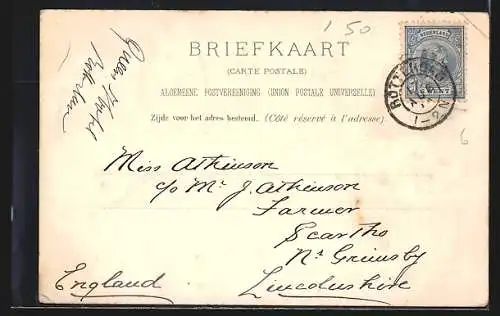 1 50
BRIEFKAART
(CARTE POSTALE)
ALGEMEENE POSTVEREENIGING (UNION POSTALE UNIVERSELLE)
Zijde voor het adres bestemd. (Côté réservé à l'adresse)
NEDERLAND
ROTTERDAM
1-2N
Miss Atkinson
c/o Mr J. Atkinson
Farmer
Scartho
Nr Grimsby
England
Lincolnshire
6